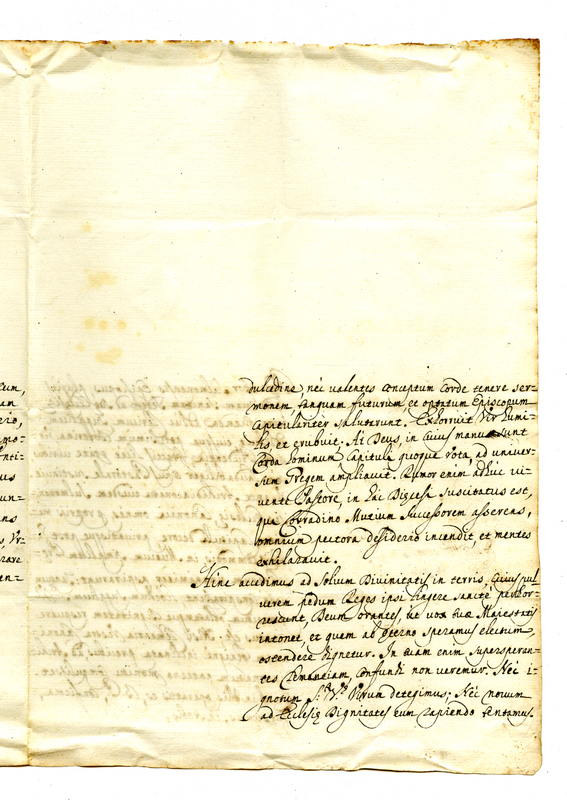 dulcedine, nec valentes conceptum Corde tenere ser=
monem, tanquam futurum, et optatum Episcopum
Capitulariter salutarunt. Exhorruit Vir humi=
lis et erubuit. At Deus, in cuius manu sunt
Corda hominum Capituli quoque vota, ad univer=
sum Gregem ampliavit. Rumor enim adhuc vi=
vente Pastore, in hac Diœcesi suscitatus est,
qui Corradino Mutium Successorem asserens,
omnium pectora desiderio incendit, et mentes
exhilaravit.
Hinc accedimus ad Solium Divinitatis in terris, cuius pul=
verem pedum Reges ipsi lingere sancte perhor=
rescunt, Deum orantes, ut vox tuæ Maiestatis
intonet, et quem ab æterno speramus electum,
ostendere dignetur. In tuam enim supersperan=
tes Clementiam confundi non veremur. Nec i=
gnotum Virum detegimus; Nec novum
ad Ecclesiæ Dignitates eum rapiendo tentamus.